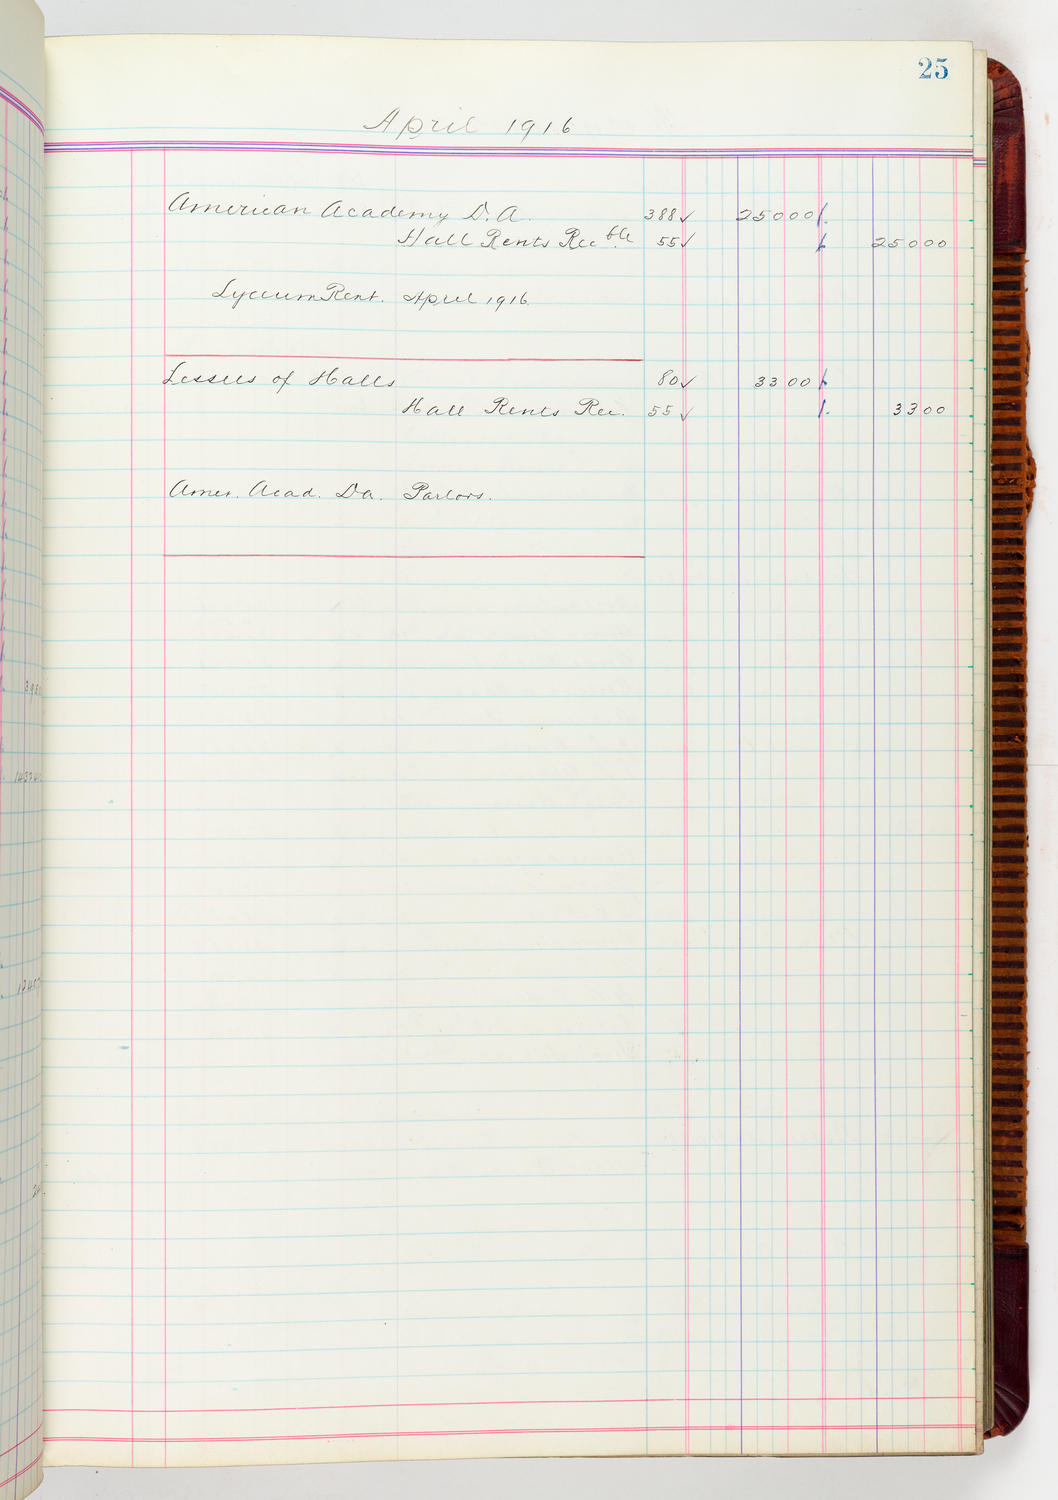 25
April 1916
American Academy D. A. 388✓ 25000
Hall Rents Rec ble 55✓ 25000
Lyceum Rent. April 1916
Lessees of Halls 80✓ 3300
Hall Rents Rec. 55✓ 3300
Amer. Acad. Da. Parlors.